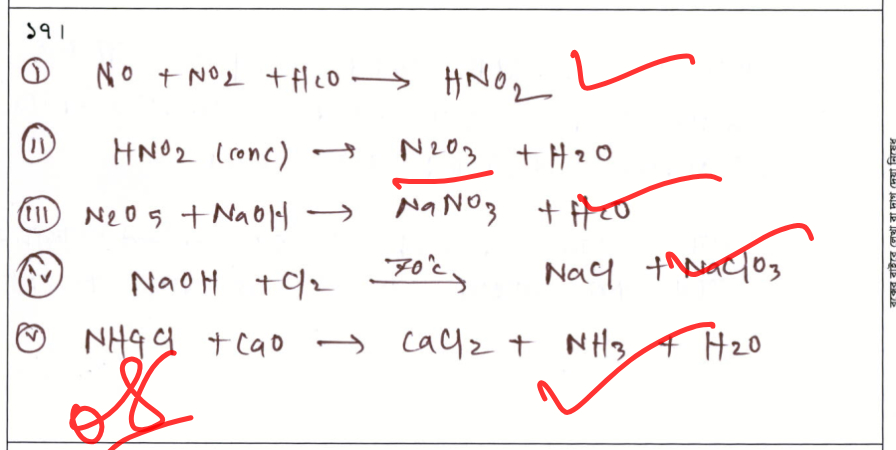 ১৭।
(i) NO + NO2 + H2O ⟶ HNO2
(ii) HNO2 (conc) ⟶ N2O3 + H2O
(iii) N2O5 + NaOH ⟶ NaNO3 + H2O
(iv) NaOH + Cl2 ⟶ 70°c NaCl + NaClO3
(v) NH4Cl + CaO ⟶ CaCl2 + NH3 + H2O
০৪